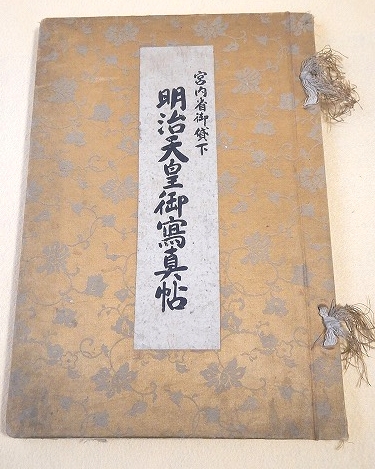 宮内省御貸下
明治天皇御寫真帖